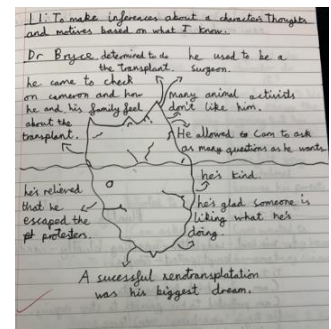 LI: To make inferences about a characters thoughts
and motives based on what I know.
Dr Bryce
determined to do
the transplant.
he used to be a
surgeon.
he came to check
on cameron and how
he and his family feel
about the
transplant.
many animal activists
don't like him.
He allowed to Cam to ask
as many questions as he wants
he's kind
he's relieved
that he
escaped the
protesters.
he's glad someone is
liking what he's
doing
A sucessful xenotransplatation
was his biggest dream.